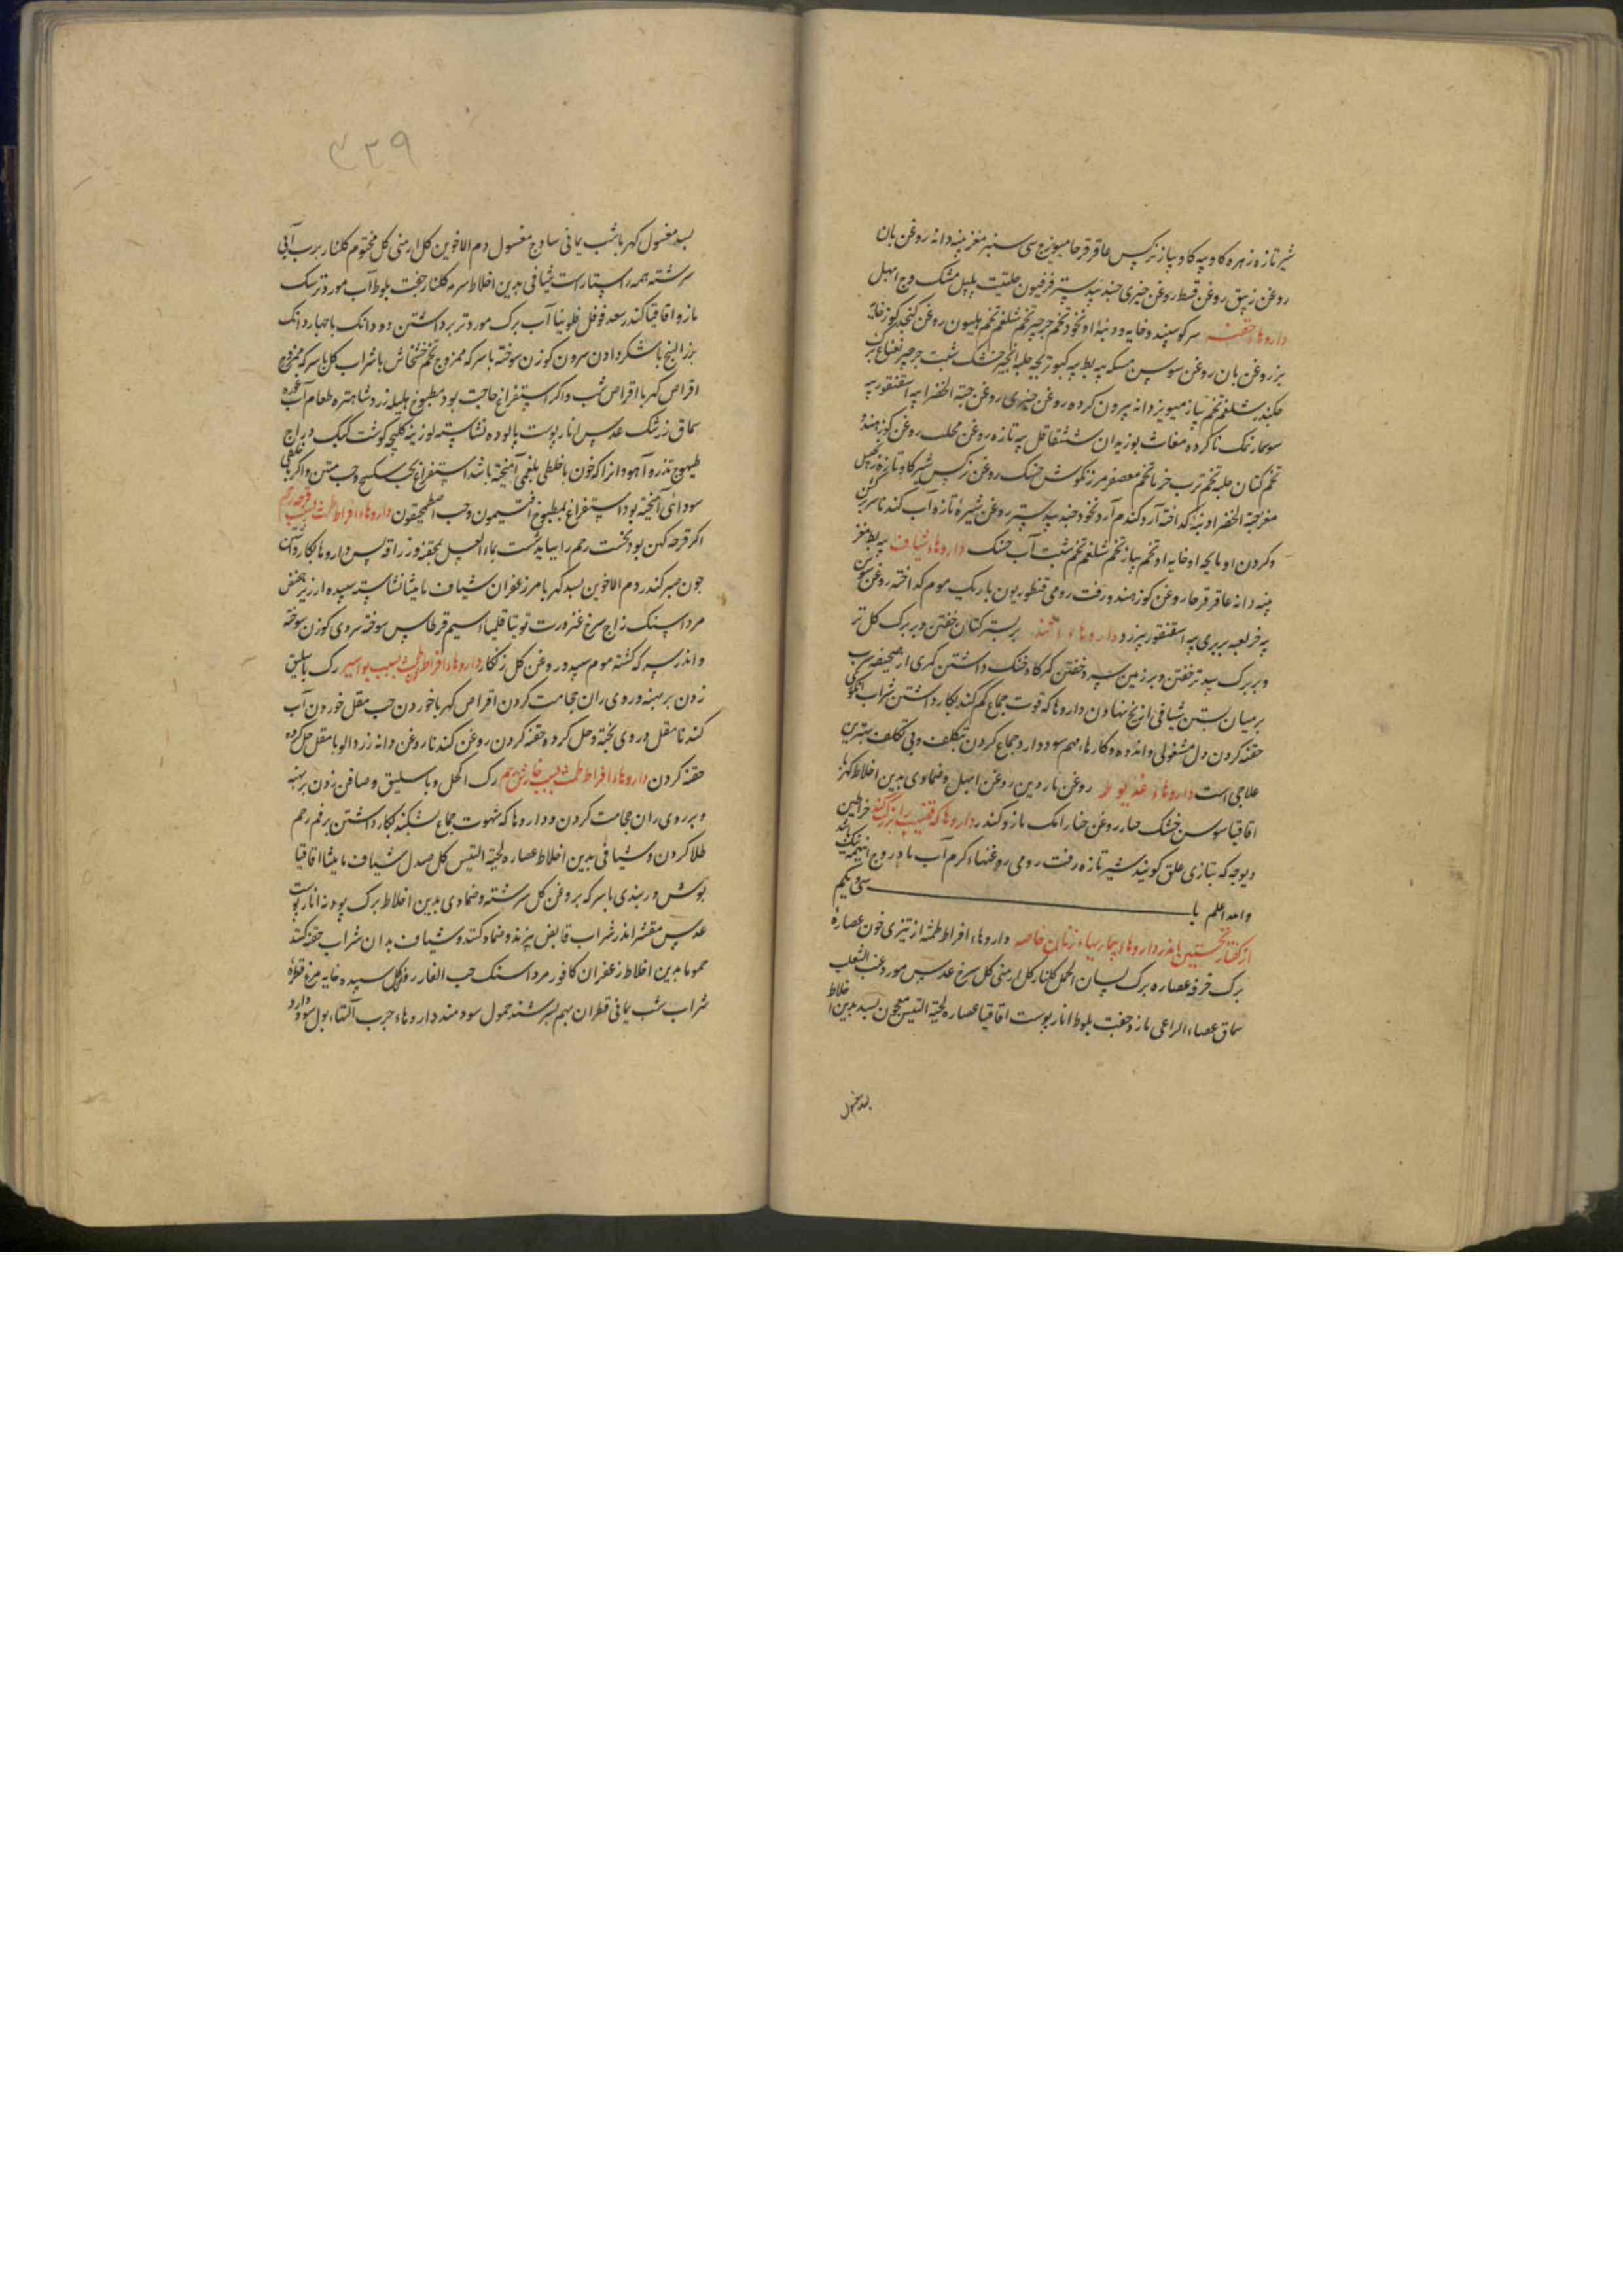 شیر تازه زهره کاو پیه کاو پیاز نرکس عاقرقرحا میویزج سی سنبه مغز پنبه دانه روغن بان
روغن زیبق روغن قسط روغن خیری جندبیدستر فرفیون حلتیت پلپل مشک وج ابهل
داروهاء حقنه سر کوسپند و خایه و دنبهٔ او نخود تخم جرجیر تخم شلغم تخم هلیون روغن کنجد کوز خایه
بز روغن بان روغن سوسن مسکه پیه بط پیه کبوتر بچه حلبه انجیر خشک شبت جرجیر نعناع برک
چکندر شلغم تخم پیاز میویز دانه بیرون کرده روغن خیری روغن حبة الخضرا پیه اسقنقور پیه
سوسمار نمک ناکرده مغاث بوزیدان ششقاقل پیه تازه روغن محلب روغن کوز هندو
تخم کتان حلبه تخم ترب خرما تخم معصفر مرزنکوش خسک روغن نرکس شیر کاو تازه زنجبیل
مغز حبة الخضرا و بنه کداخته آرد کندم آرد نخود جندبیدستر روغن شیرهٔ تازه آب کندنا سرین
و کردن او پایچه او خایه او تخم پیاز تخم شلغم تخم شبت آب خسک داروهاء شیاف پیه بط مغز
پنبه دانه عاقرقرحا روغن کوز هندو زفت رومی قنطوریون باریک موم کداخته روغن سوسن
پیه خر لعبه بربری پیه اسقنقور بیزرود داروهاء بر بستر کتان خفتن و بر برک کل تر
و بر برک بید تر خفتن و بر زمین سرد خفتن کمرکاه خنک داشتن کمری از
بر میان بستن شیافی از یخ نهادن داروها که قوت جماع کم کند بکار داشتن شراب انکوری
حقنه کردن دل مشغولی و اندوه و کارهاء مهم سود دارد جماع کردن بتکلف و بی تکلف بهترین
علاجی است داروهاء عذیوط روغن ناردین روغن ابهل و ضمادی بدین اخلاط کزمازج
اقاقیا سوسن خشک حنا روغن حنا رامک مازو کندر داروها که قضیب را بزرک کند خراطین
دیوچه که بتازی علق کویند شیر تازه زفت رومی روغنهاء کرم آب بادروج اینهمه نیک باشد
والله اعلم با سی و یکم
از کفتار نخستین اندر داروهاء بیماریهاء زنان خاصه داروهاء افراط طمث از تیزی خون عصارهٔ
برک خرفه عصاره برک لسان الحمل کلنار کل ارمنی کل سرخ عدس مورد عنب الثعلب
سماق عصاء الراعی مازو جفت بلوط انار پوست اقاقیا عصاره لحیة التیس معجون بسد بدین اخلاط
بسد مغسول
۴۲۹
بسد مغسول کهربا شب یمانی سادج مغسول دم الاخوین کل ارمنی کل مختوم کلنار برب آبی
سرشته همه راستاراست شیافی بدین اخلاط سرمه کلنار جفت بلوط آب مورد تر سک
مازو اقاقیا کندر سعد فوفل فلونیا آب برک مورد تر برداشتن دو دانک با چهار دانک
بزر البنج با شکر دادن سرون کوزن سوخته با سرکه ممزوج تخم خشخاش با شراب کل با سرکه ممزوج
اقراص کهربا اقراص شب و اکر استفراغ حاجت بود مطبوخ هلیله زرد شاهتره طعام آب غوره
سماق زرشک عدس انار پوست بالوده نشاسته لوزینه کلیچه کوشت کبک دراج
طیهوج تذرو آهو و انرا که خون با خلطی بلغمی آمیخته باشد استفراغ بحب سکبینج وحب منتن و اکر با خلطی
سوداوی آمیخته بود استفراغ بمطبوخ افتیمون وحب اصطمحیقون داروهاء افراط طمث بسبب قرحه رحم
اکر قرحه کهن بود نخست رحم را بباید شست بماء العسل بمحقنه و زراقه پس داروها بکار داشتن
چون صبر کندر دم الاخوین بسد کهربا مر زعفران شیاف مامیثا نشاسته سپیده ارزیز حضض
مرداسنک زاج سرخ عنزروت توتیا قلیمیا سیم قرطاس سوخته سروی کوزن سوخته
و اندر سرکه کشته موم سپید و روغن کل زنکار داروهاء افراط طمث بسبب بواسیر رک باسلیق
زدن برهنه و روی ران حجامت کردن اقراص کهربا خوردن حب مقل خوردن آب
کندنا مقل در وی پخته و حل کرده حقنه کردن روغن کندنا روغن دانه زردالو با مقل حل کرده
حقنه کردن داروهاء افراط طمث بسبب خارش رحم رک اکحل و باسلیق و صافن زدن برهنه
و بر روی ران حجامت کردن و داروها که شهوت جماع بشکند بکار داشتن بر فم رحم
طلا کردن و شیافی بدین اخلاط عصاره لحیة التیس کل صندل شیاف مامیثا اقاقیا
بوش دربندی با سرکه بروغن کل سرشته و ضمادی بدین اخلاط برک پودنه انار پوست
عدس مقشر اندر شراب قابض بپزند و ضماد کنند و شیاف بدان شراب حقنه کند
حمولا بدین اخلاط زعفران کافور مرداسنک حب الغار روغن کل سپیده خایه مرغ قطرهٔ
شراب شب یمانی قطران بهم بسرشند حمول سودمند داروهاء جرب آلتهاء بول سود دارد